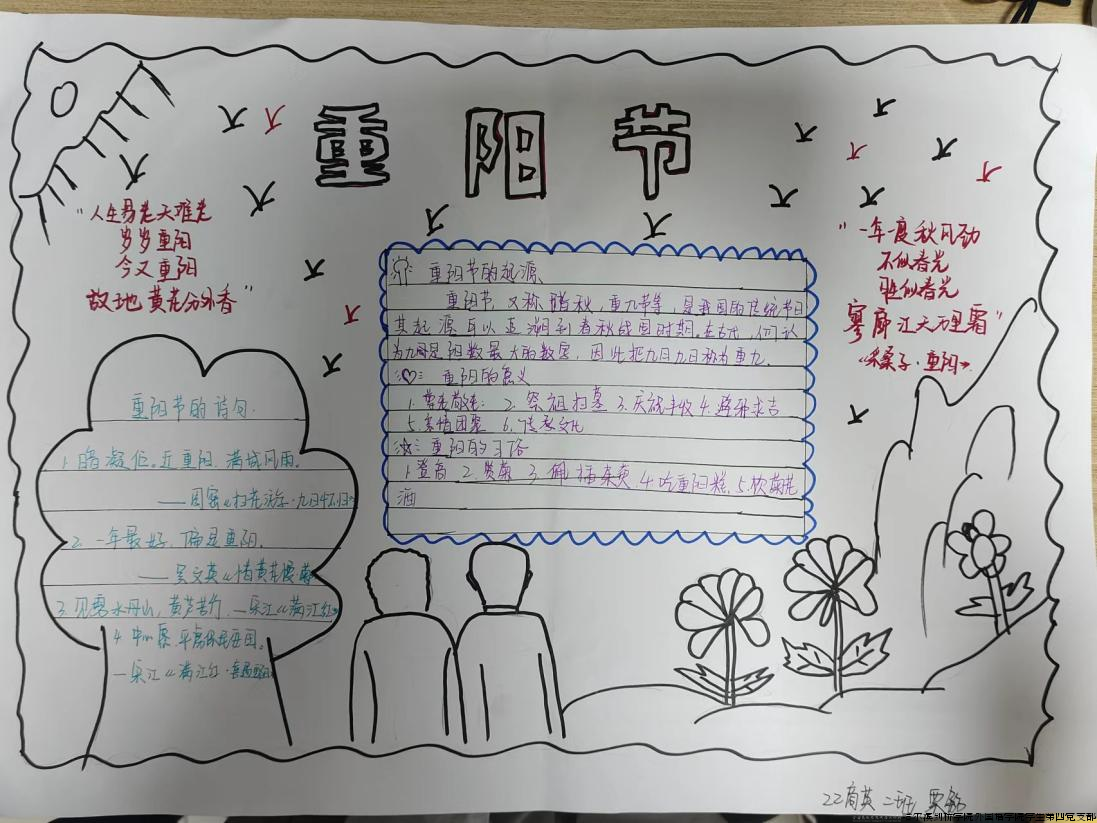 重阳节
"人生易老天难老
岁岁重阳
今又重阳
故地黄花分外香"
"一年一度秋风劲
不似春光
胜似春光
寥廓江天万里霜"
《采桑子·重阳》
重阳节的起源
重阳节,又称踏秋,重九节等,是我国的传统节日
其起源可以追溯到春秋战国时期。在古代,们认
为九是阳数最大的数字,因此把九月九日称为重九。
重阳的意义
1. 尊老敬老 2. 祭祖扫墓 3. 庆祝丰收 4. 求吉
5. 亲情团聚 6. 传承文化
重阳的习俗
1. 登高 2. 赏菊 3. 佩插茱萸 4. 吃重阳糕 5. 饮菊花
酒
重阳节的诗句
1. 暗凝伫。近重阳、满城风雨。
——周密《扫花游·九日怀归》
2. 一年最好、偏是重阳。
——吴文英《惜黄花慢·菊》
3. 黄芦苦竹。—宋江《满江红》
4.
—宋江《满江红·
22商英二班